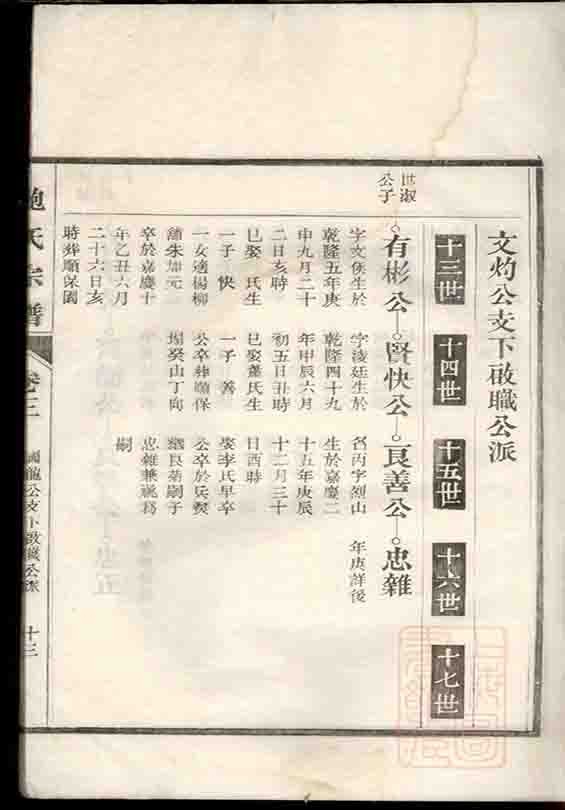 文灼公支下啟職公派
十三世
十四世
十五世
十六世
十七世
世淑
公子
有彬公
賢快公
良善公
忠雜
字文侯生於
乾隆五年庚
申九月二十
二日亥時
已娶 氏生
一子 快
一女適楊柳
舖朱加元
卒於嘉慶十
年乙丑六月
二十六日亥
時葬順保園
字淩廷生於
乾隆四十九
年甲辰六月
初五日丑時
已娶蕭氏生
一子 善
公卒葬順保
塌癸山丁向
名丙字列山
生於嘉慶二
十五年庚辰
十二月三十
日酉時
娶李氏早卒
公卒於兵燹
繼良菊嗣子
忠雜兼祧爲
嗣
年庚詳後
鮑氏宗譜
卷三
國龍公支下啟職公派
十三